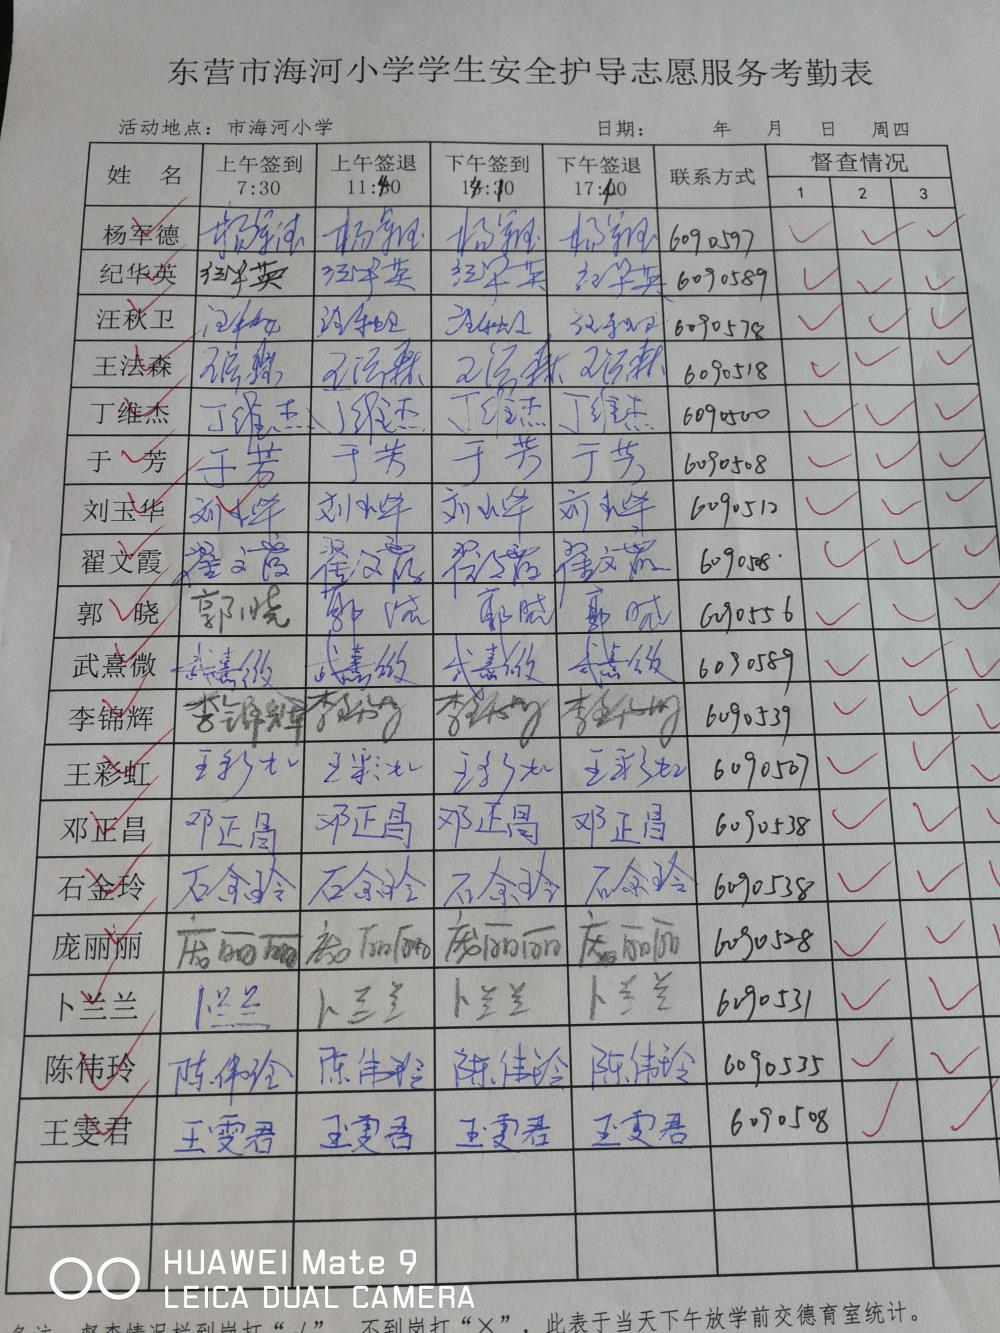 东营市海河小学学生安全护导志愿服务考勤表
活动地点：市海河小学 日期： 年 月 日 周四
姓 名 上午签到 7:30 上午签退 下午签到 下午签退 联系方式 督查情况
1 2 3
杨军德 杨军德 杨军德 杨军德 杨军德 6090597 ✓ ✓ ✓
纪华英 纪华英 纪华英 纪华英 纪华英 6090589 ✓ ✓ ✓
汪秋卫 汪秋卫 汪秋卫 汪秋卫 汪秋卫 6090578 ✓ ✓ ✓
王法森 王法森 王法森 王法森 王法森 6090518 ✓ ✓ ✓
丁维杰 丁维杰 丁维杰 丁维杰 丁维杰 6090500 ✓ ✓ ✓
于 芳 于芳 于芳 于芳 于芳 6090508 ✓ ✓ ✓
刘玉华 刘玉华 刘玉华 刘玉华 刘玉华 6090512 ✓ ✓ ✓
翟文霞 翟文霞 翟文霞 翟文霞 翟文霞 ✓ ✓ ✓
郭 晓 郭晓 郭晓 郭晓 郭晓 6090556 ✓ ✓ ✓
武熹微 武熹微 武熹微 武熹微 武熹微 6030589 ✓ ✓ ✓
李锦辉 李锦辉 李锦辉 李锦辉 李锦辉 6090539 ✓ ✓ ✓
王彩虹 王彩虹 王彩虹 王彩虹 王彩虹 6090507 ✓ ✓ ✓
邓正昌 邓正昌 邓正昌 邓正昌 邓正昌 6090538 ✓ ✓ ✓
石金玲 石金玲 石金玲 石金玲 石金玲 6090538 ✓ ✓ ✓
庞丽丽 庞丽丽 庞丽丽 庞丽丽 庞丽丽 6090528 ✓ ✓ ✓
卜兰兰 卜兰兰 卜兰兰 卜兰兰 卜兰兰 6090531 ✓ ✓
陈伟玲 陈伟玲 陈伟玲 陈伟玲 陈伟玲 6090535 ✓ ✓
王雯君 王雯君 王雯君 王雯君 王雯君 6090508 ✓ ✓
HUAWEI Mate 9
LEICA DUAL CAMERA
备注：督查情况栏到岗打“√”，不到岗打“×”，此表于当天下午放学前交德育室统计。